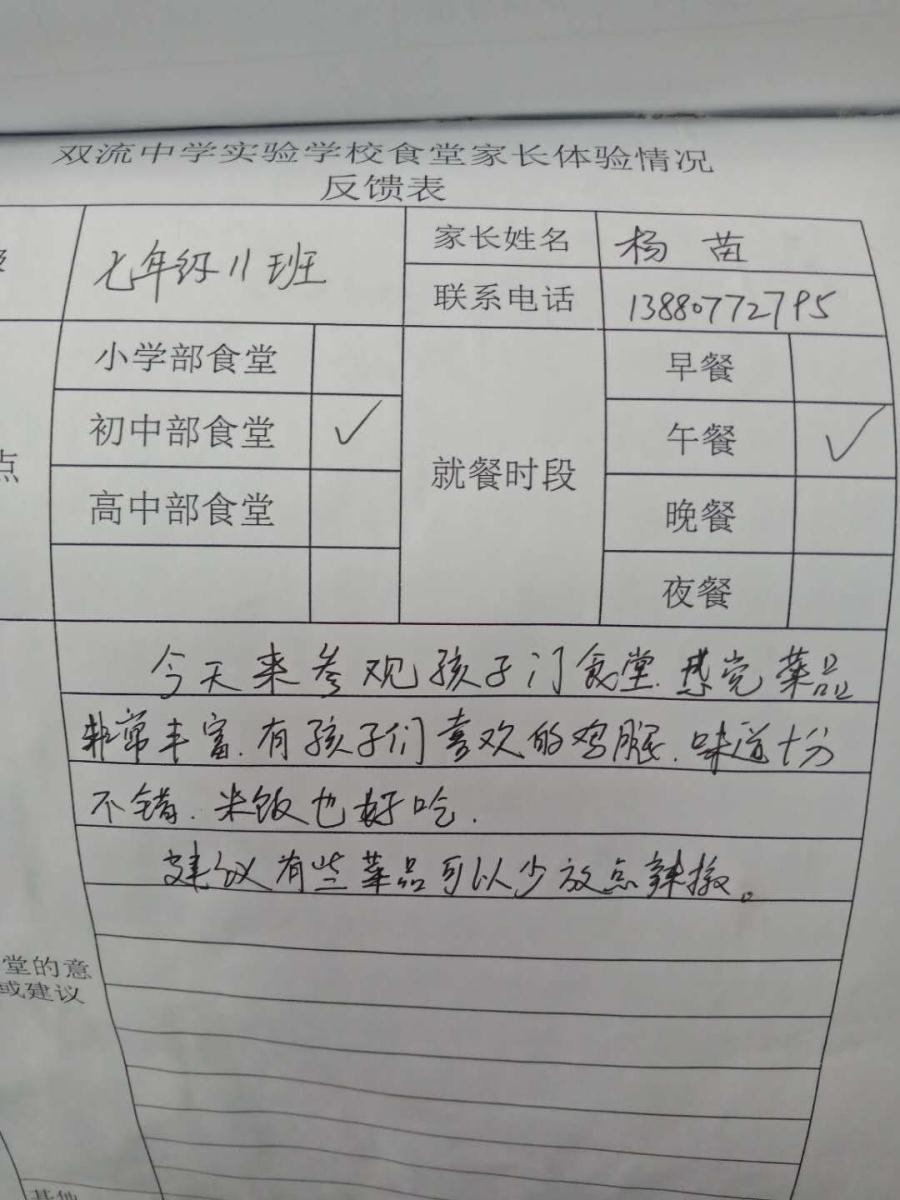 双流中学实验学校食堂家长体验情况
反馈表
七年级11班
家长姓名
杨苗
联系电话
13880772795
小学部食堂
初中部食堂 ✓
高中部食堂
点
就餐时段
早餐
午餐 ✓
晚餐
夜餐
今天来参观孩子门食堂.感觉菜品
非常丰富.有孩子们喜欢的鸡腿.味道十分
不错.米饭也好吃.
建议有些菜品可以少放点辣椒。
堂的意
或建议
其他